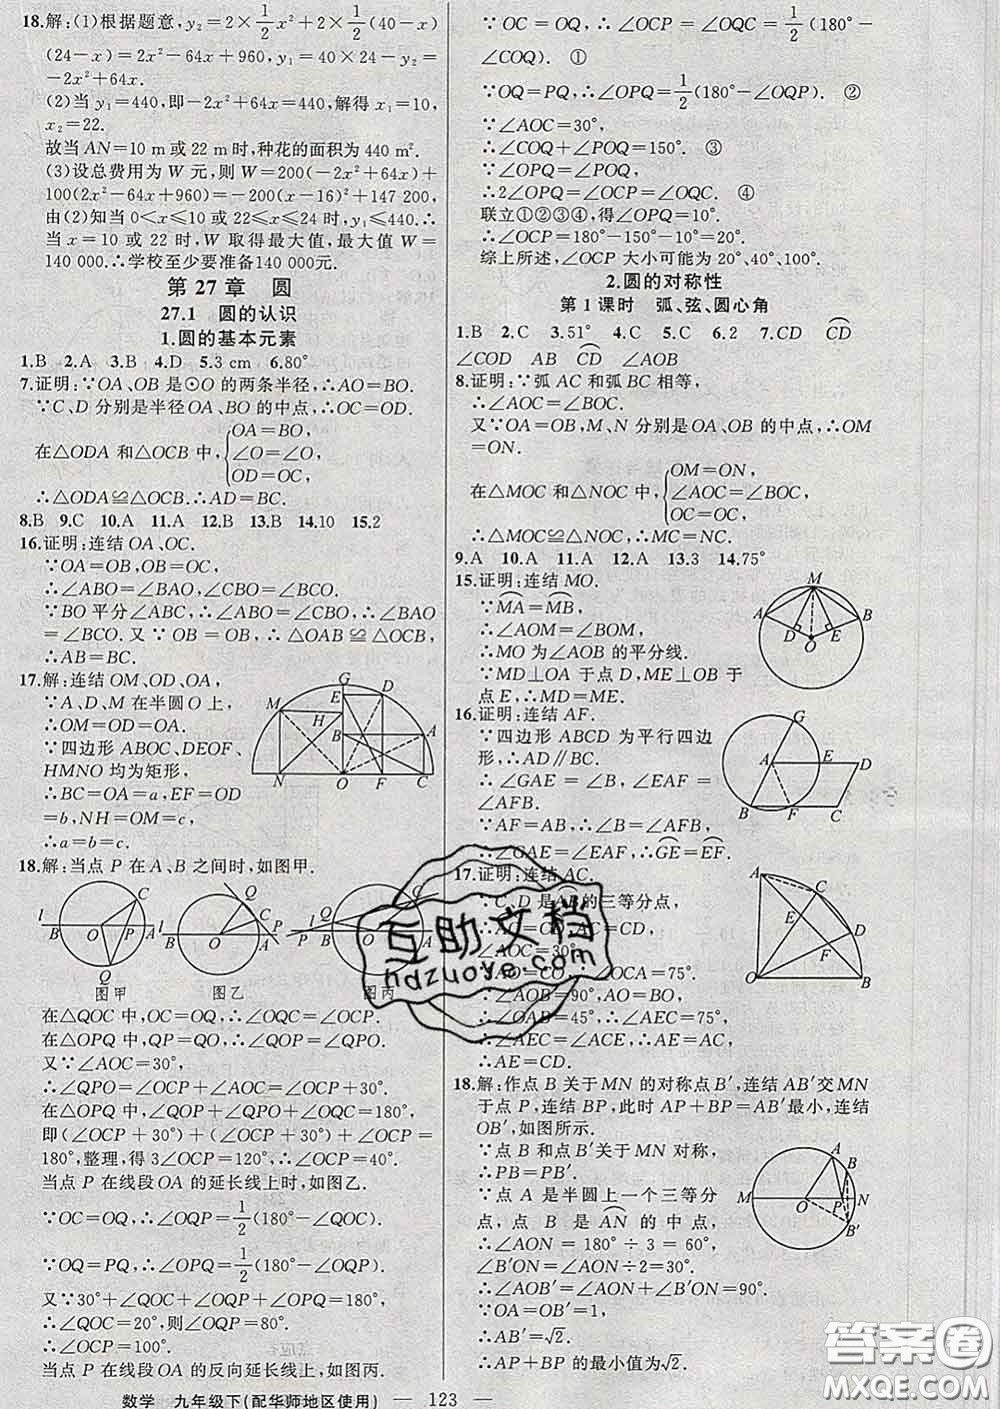 18.解:(1)根据题意,y₂=2×1/2x²+2×1/2(40-x)
(24-x)=2x²-64x+960,y₁=40×24-y₂=
-2x²+64x.
(2)当y₁=440,即-2x²+64x=440,解得x₁=10,
x₂=22.
故当AN=10 m或22 m时,种花的面积为440 m².
(3)设总费用为W元,则W=200(-2x²+64x)+
100(2x²-64x+960)=-200(x-16)²+147 200,
由(2)知当0<x≤10或22≤x≤24时,y₁≤440.∴
当x=10或22时,W取得最大值,最大值W=
140 000.∴学校至少要准备140 000元.
第27章 圆
27.1 圆的认识
1.圆的基本元素
1.B 2.A 3.B 4.D 5.3 cm 6.80°
7.证明:∵OA、OB是⊙O的两条半径,∴AO=BO.
∵C、D分别是半径OA、BO的中点,∴OC=OD.
在△ODA和△OCB中,{OA=BO,
∠O=∠O,
OD=OC,
∴△ODA≌△OCB.∴AD=BC.
8.B 9.C 10.A 11.A 12.B 13.B 14.10 15.2
16.证明:连结OA、OC.
∵OA=OB,OB=OC,
∴∠ABO=∠BAO,∠CBO=∠BCO.
∵BO平分∠ABC,∴∠ABO=∠CBO,∴∠BAO
=∠BCO.又∵OB=OB,∴△OAB≌△OCB,
∴AB=BC.
17.解:连结OM、OD、OA,
∵A、D、M在半圆O上,
∴OM=OD=OA.
∵四边形ABOC、DEOF、
HMNO均为矩形,
∴BC=OA=a,EF=OD
=b,NH=OM=c,
∴a=b=c.
G
M E D
H
B A
N O F C
18.解:当点P在A、B之间时,如图甲.
l B O P A C Q
图甲
Q C B O A P
图乙
l P B O A C Q
图丙
在△QOC中,OC=OQ,∴∠OQC=∠OCP.
在△OPQ中,QP=QO,∴∠QOP=∠QPO.
又∵∠AOC=30°,
∴∠QPO=∠OCP+∠AOC=∠OCP+30°.
在△OPQ中,∠QOP+∠QPO+∠OQC=180°,
即(∠OCP+30°)+(∠OCP+30°)+∠OCP=
180°,整理,得3∠OCP=120°,∴∠OCP=40°.
当点P在线段OA的延长线上时,如图乙.
∵OC=OQ,∴∠OQP=1/2(180°-∠QOC).
∵OQ=PQ,∴∠OPQ=1/2(180°-∠OQP).
又∵30°+∠QOC+∠OQP+∠OPQ=180°,
∴∠QOC=20°,则∠OQP=80°.
∴∠OCP=100°.
当点P在线段OA的反向延长线上时,如图丙.
∵OC=OQ,∴∠OCP=∠OQC=1/2(180°-
∠COQ). ①
∵OQ=PQ,∴∠OPQ=1/2(180°-∠OQP). ②
∵∠AOC=30°,
∴∠COQ+∠POQ=150°. ③
∵∠OPQ=∠POQ,
∴2∠OPQ=∠OCP=∠OQC. ④
联立①②③④,得∠OPQ=10°.
∴∠OCP=180°-150°-10°=20°.
综上所述,∠OCP大小可能为20°、40°、100°.
2.圆的对称性
第1课时 弧、弦、圆心角
1.B 2.C 3.51° 4.C 5.C 6.2 7.CD CD
∠COD AB CD ∠AOB
8.证明:∵弧AC和弧BC相等,
∴∠AOC=∠BOC.
又∵OA=OB,M、N分别是OA、OB的中点,∴OM
=ON.
在△MOC和△NOC中,{OM=ON,
∠AOC=∠BOC,
OC=OC,
∴△MOC≌△NOC,∴MC=NC.
9.A 10.A 11.A 12.A 13.3 14.75°
15.证明:连结MO.
∵MA=MB,
∴∠AOM=∠BOM,
∴MO为∠AOB的平分线.
∵MD⊥OA于点D,ME⊥OB于
点E,∴MD=ME.
M A B D E O
16.证明:连结AF.
∵四边形ABCD为平行四边
形,∴AD∥BC.
∴∠GAE=∠B,∠EAF=
∠AFB.
∵AF=AB,∴∠AFB=∠B,
∴∠GAE=∠EAF,∴GE=EF.
G A E D B F C
17.证明:连结AC.
∵C、D是AB的三等分点,
∴AC=CD,
∠AOC=30°.
∠OCA=75°.
∵∠AOB=90°,AO=BO,
∴∠OAB=45°,∴∠AEC=75°,
∴∠AEC=∠ACE,∴AE=AC,
∴AE=CD.
A C E D F O B
18.解:作点B关于MN的对称点B′,连结AB′交MN
于点P,连结BP,此时AP+BP=AB′最小,连结
OB′,如图所示.
∵点B和点B′关于MN对称,
∴PB=PB′.
∵点A是半圆上一个三等分
点,点B是AN的中点,
∴∠AON=180°÷3=60°,
∠B′ON=∠AON÷2=30°.
∴∠AOB′=∠AON+∠B′ON=90°.
∵OA=OB′=1,
∴AB′=√2.
∴AP+BP的最小值为√2.
A B M O P N B′
数学 九年级下(配华师地区使用) — 123 —
互助文档
hdzhuoye.com
答案圈
MXQE.COM